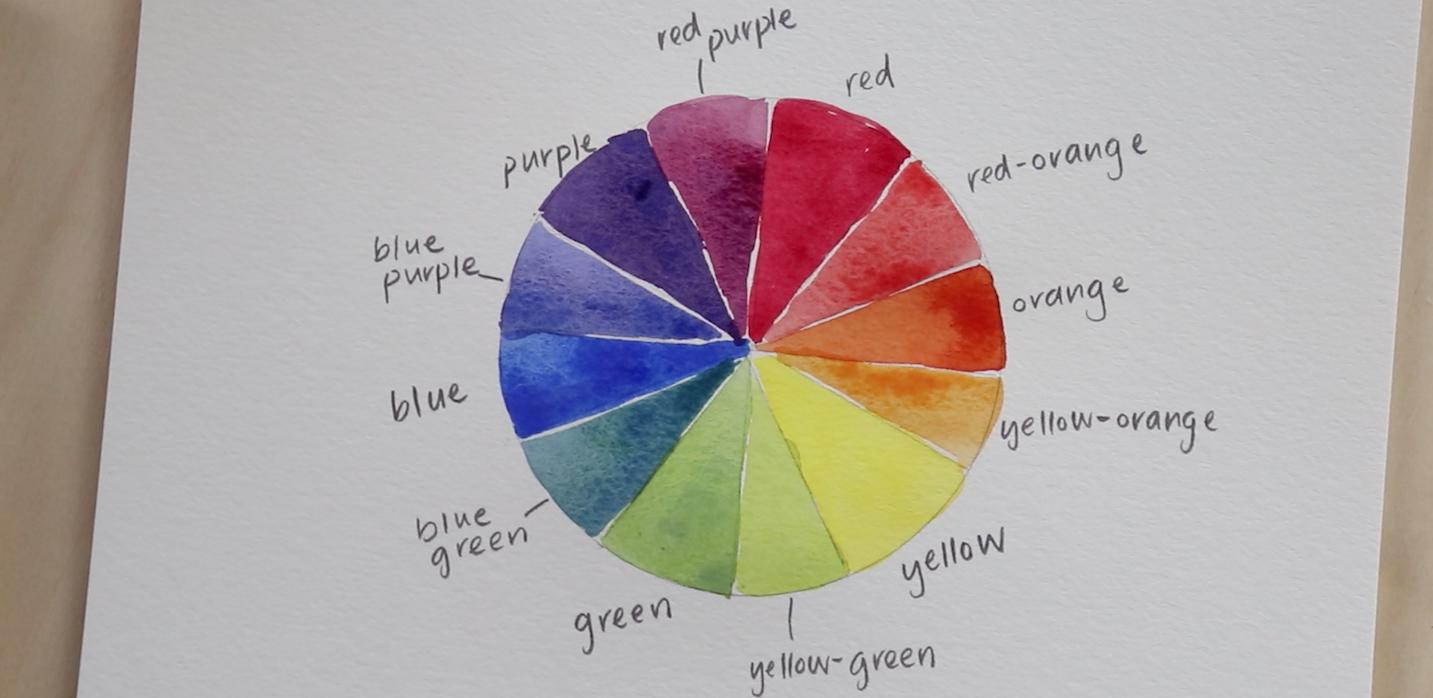 red purple
red
red-orange
orange
yellow-orange
yellow
yellow-green
green
blue
green
blue
blue
purple
purple